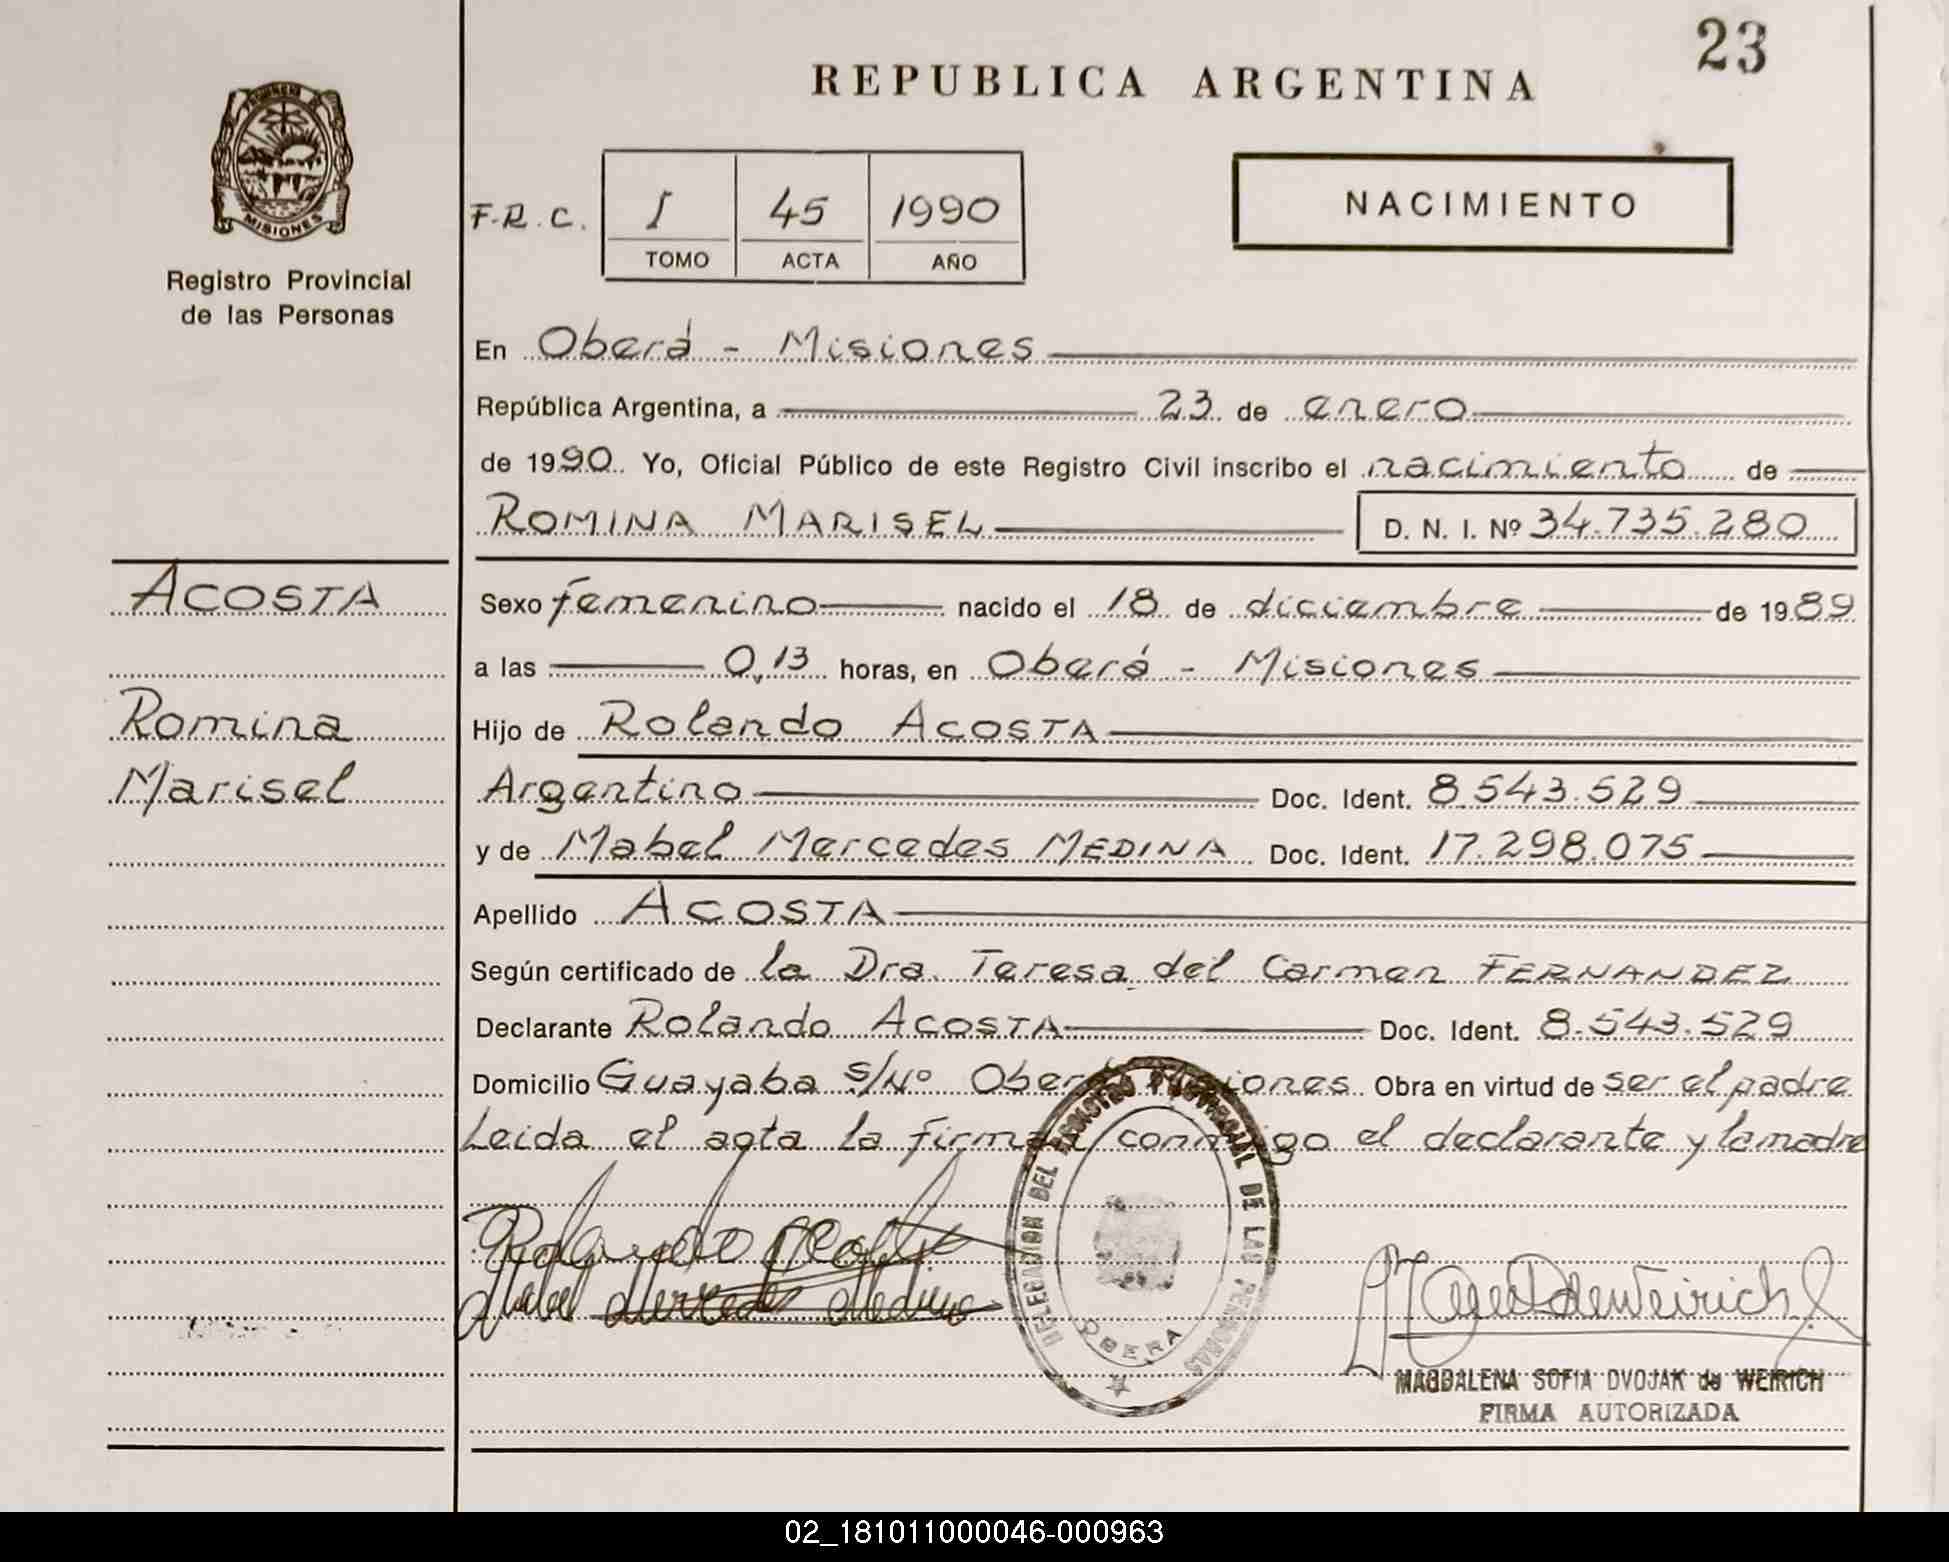 23
REPUBLICA ARGENTINA
MISIONES
Registro Provincial
de las Personas
F.R.C.
I 45 1990
TOMO ACTA AÑO
NACIMIENTO
En Oberá - Misiones
República Argentina, a 23 de enero
de 1990 Yo, Oficial Público de este Registro Civil inscribo el nacimiento de
ROMINA MARISEL D. N. I. Nº 34.735.280
ACOSTA
Romina
Marisel
Sexo femenino nacido el 18 de diciembre de 1989
a las 0,13 horas, en Oberá - Misiones
Hijo de Rolando ACOSTA
Argentino Doc. Ident. 8.543.529
y de Mabel Mercedes MEDINA Doc. Ident. 17.298.075
Apellido ACOSTA
Según certificado de la Dra. Teresa del Carmen FERNANDEZ
Declarante Rolando ACOSTA Doc. Ident. 8.543.529
Domicilio Guayaba s/Nº Oberá Misiones Obra en virtud de ser el padre
Leida el acta la firman conmigo el declarante y la madre
Rolando Acosta
Mabel Mercedes Medina
DELEGACION DEL REGISTRO PROVINCIAL DE LAS PERSONAS
OBERA
MAGDALENA SOFIA DVOJAK de WEIRICH
FIRMA AUTORIZADA
02_181011000046-000963